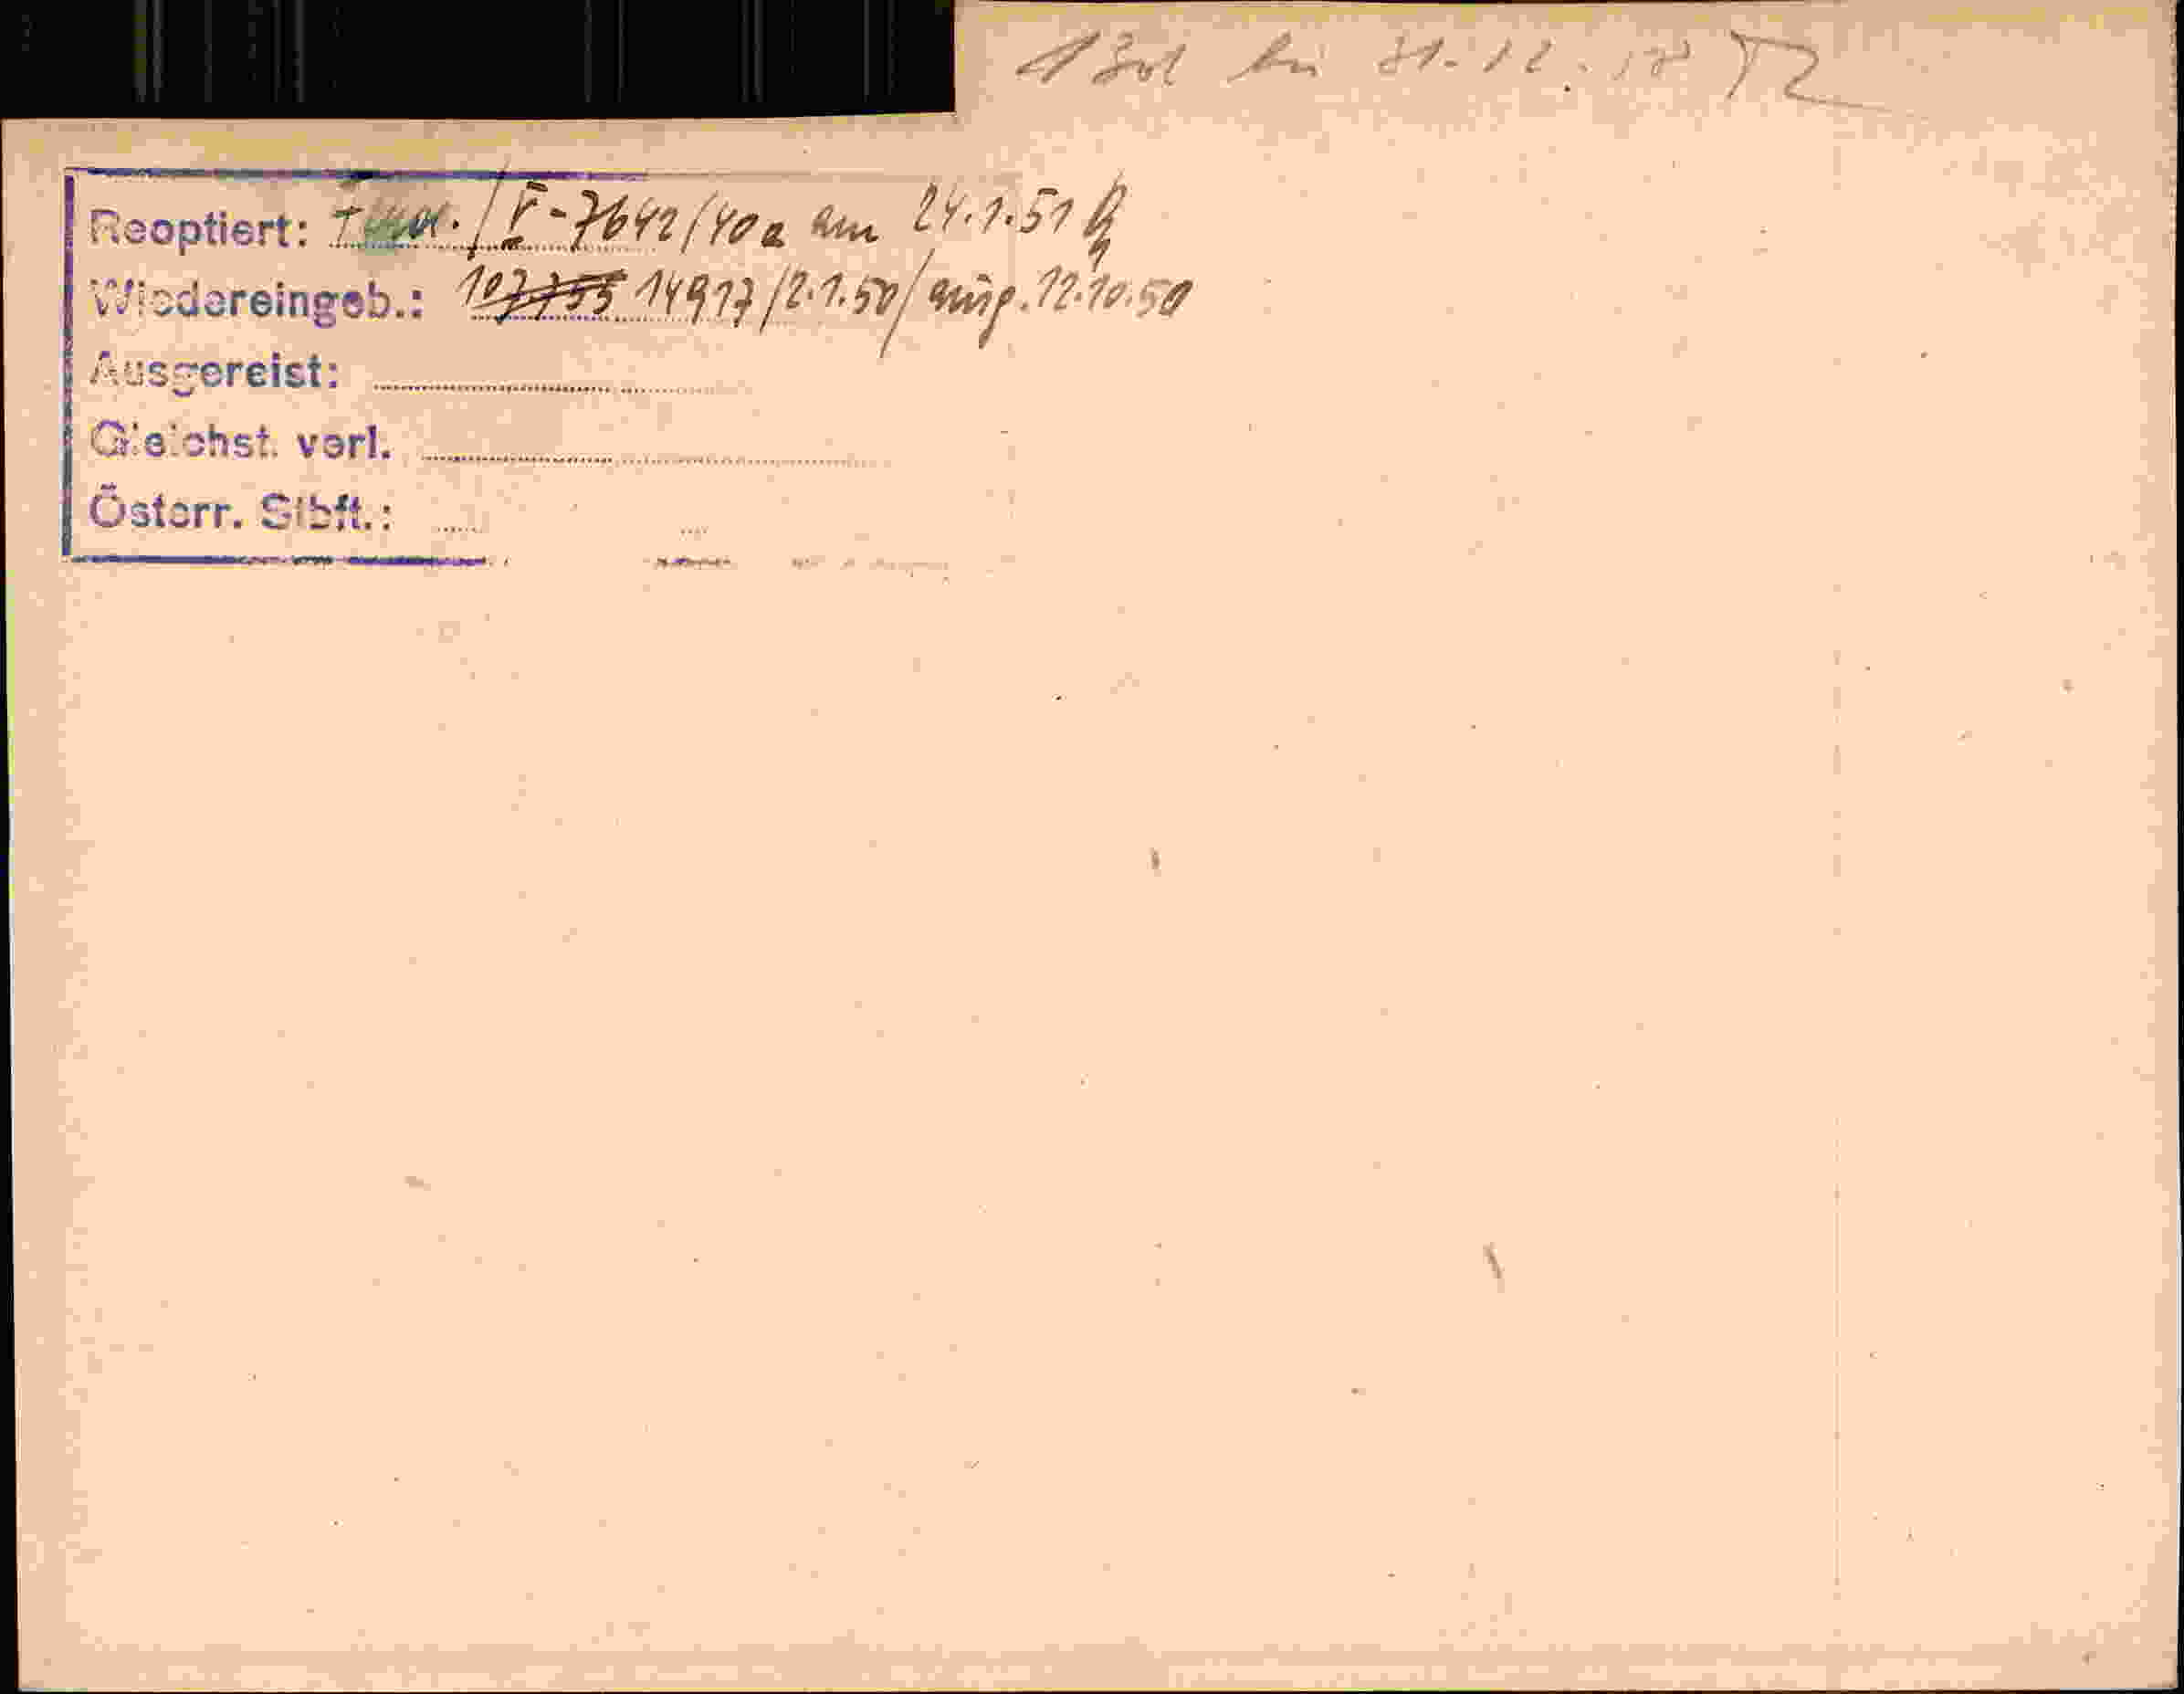 bis 31.12.
Reoptiert: V-7642/40a am 24.1.51
Wiedereingeb.: 107755 14917/2.1.50/ ausg. 12.10.50
Ausgereist:
Gleichst. verl.
Österr. Stbft.: